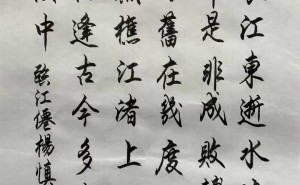 長江東逝水
是非成敗轉
舊在幾度
樵江渚上
逢古今多
中 臨江僊楊慎